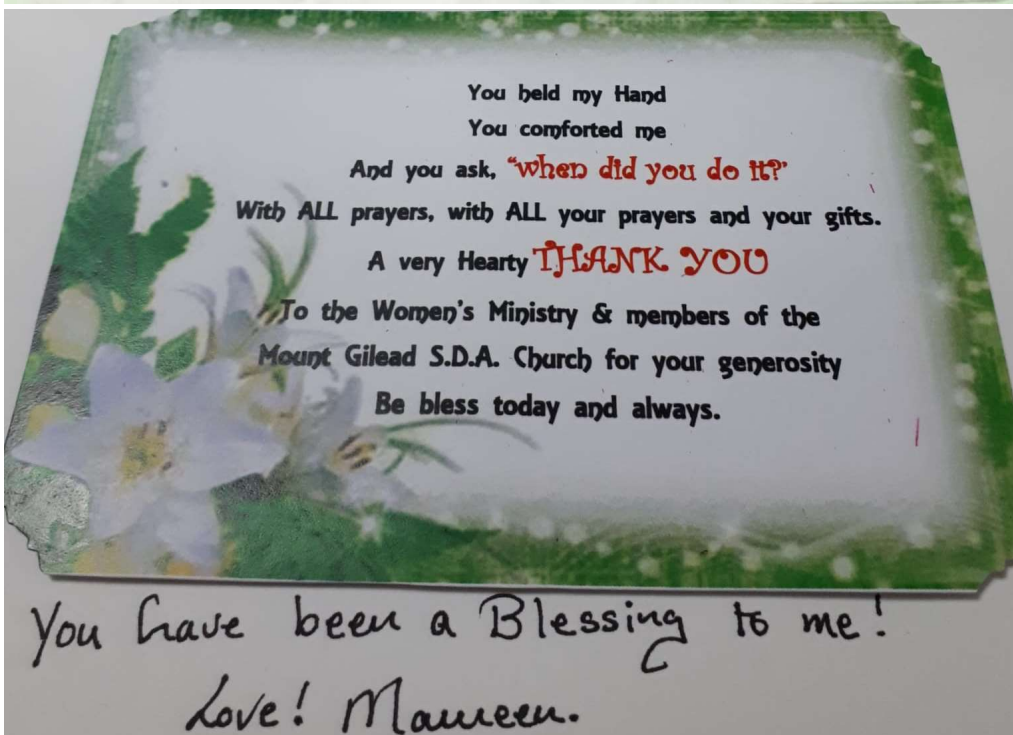 You held my Hand
You comforted me
And you ask, "when did you do it?"
With ALL prayers, with ALL your prayers and your gifts.
A very Hearty THANK YOU
To the Women's Ministry & members of the
Mount Gilead S.D.A. Church for your generosity
Be bless today and always.
You have been a Blessing to me!
Love! Maureen.